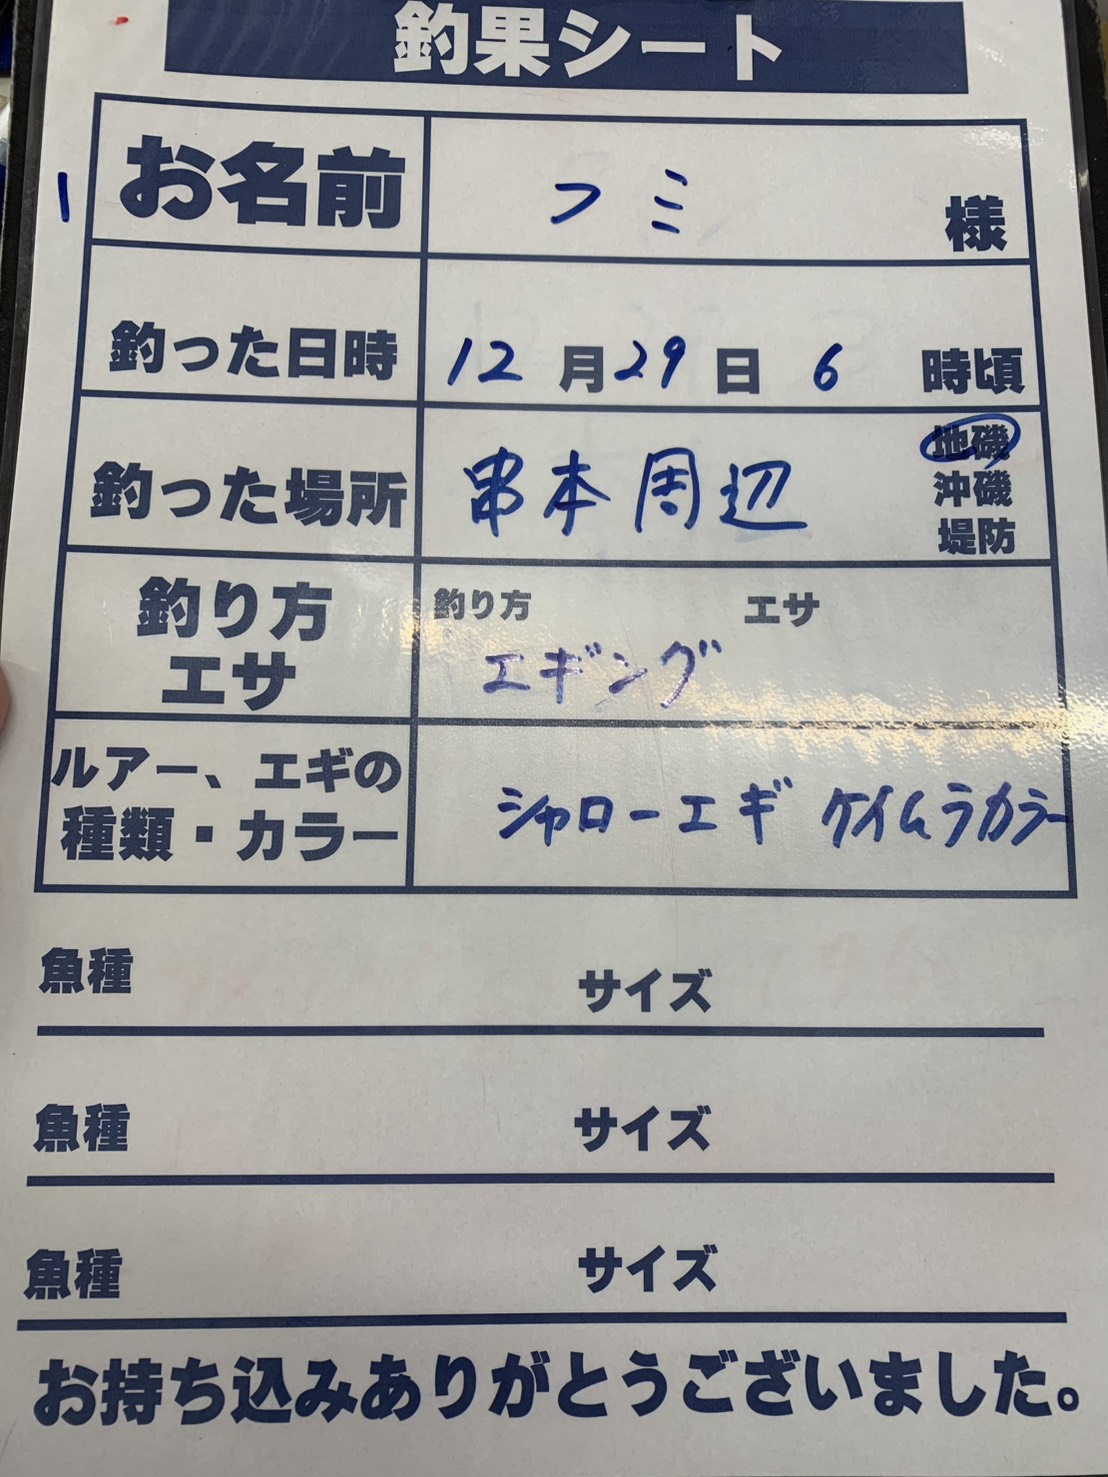 釣果シート
1 お名前 フミ 様
釣った日時 12月29日 6時頃
釣った場所 串本周辺 地磯
沖磯
堤防
釣り方 釣り方 エサ
エサ エギング
ルアー、エギの
種類・カラー シャローエギ ケイムラカラー
魚種 サイズ
魚種 サイズ
魚種 サイズ
お持ち込みありがとうございました。